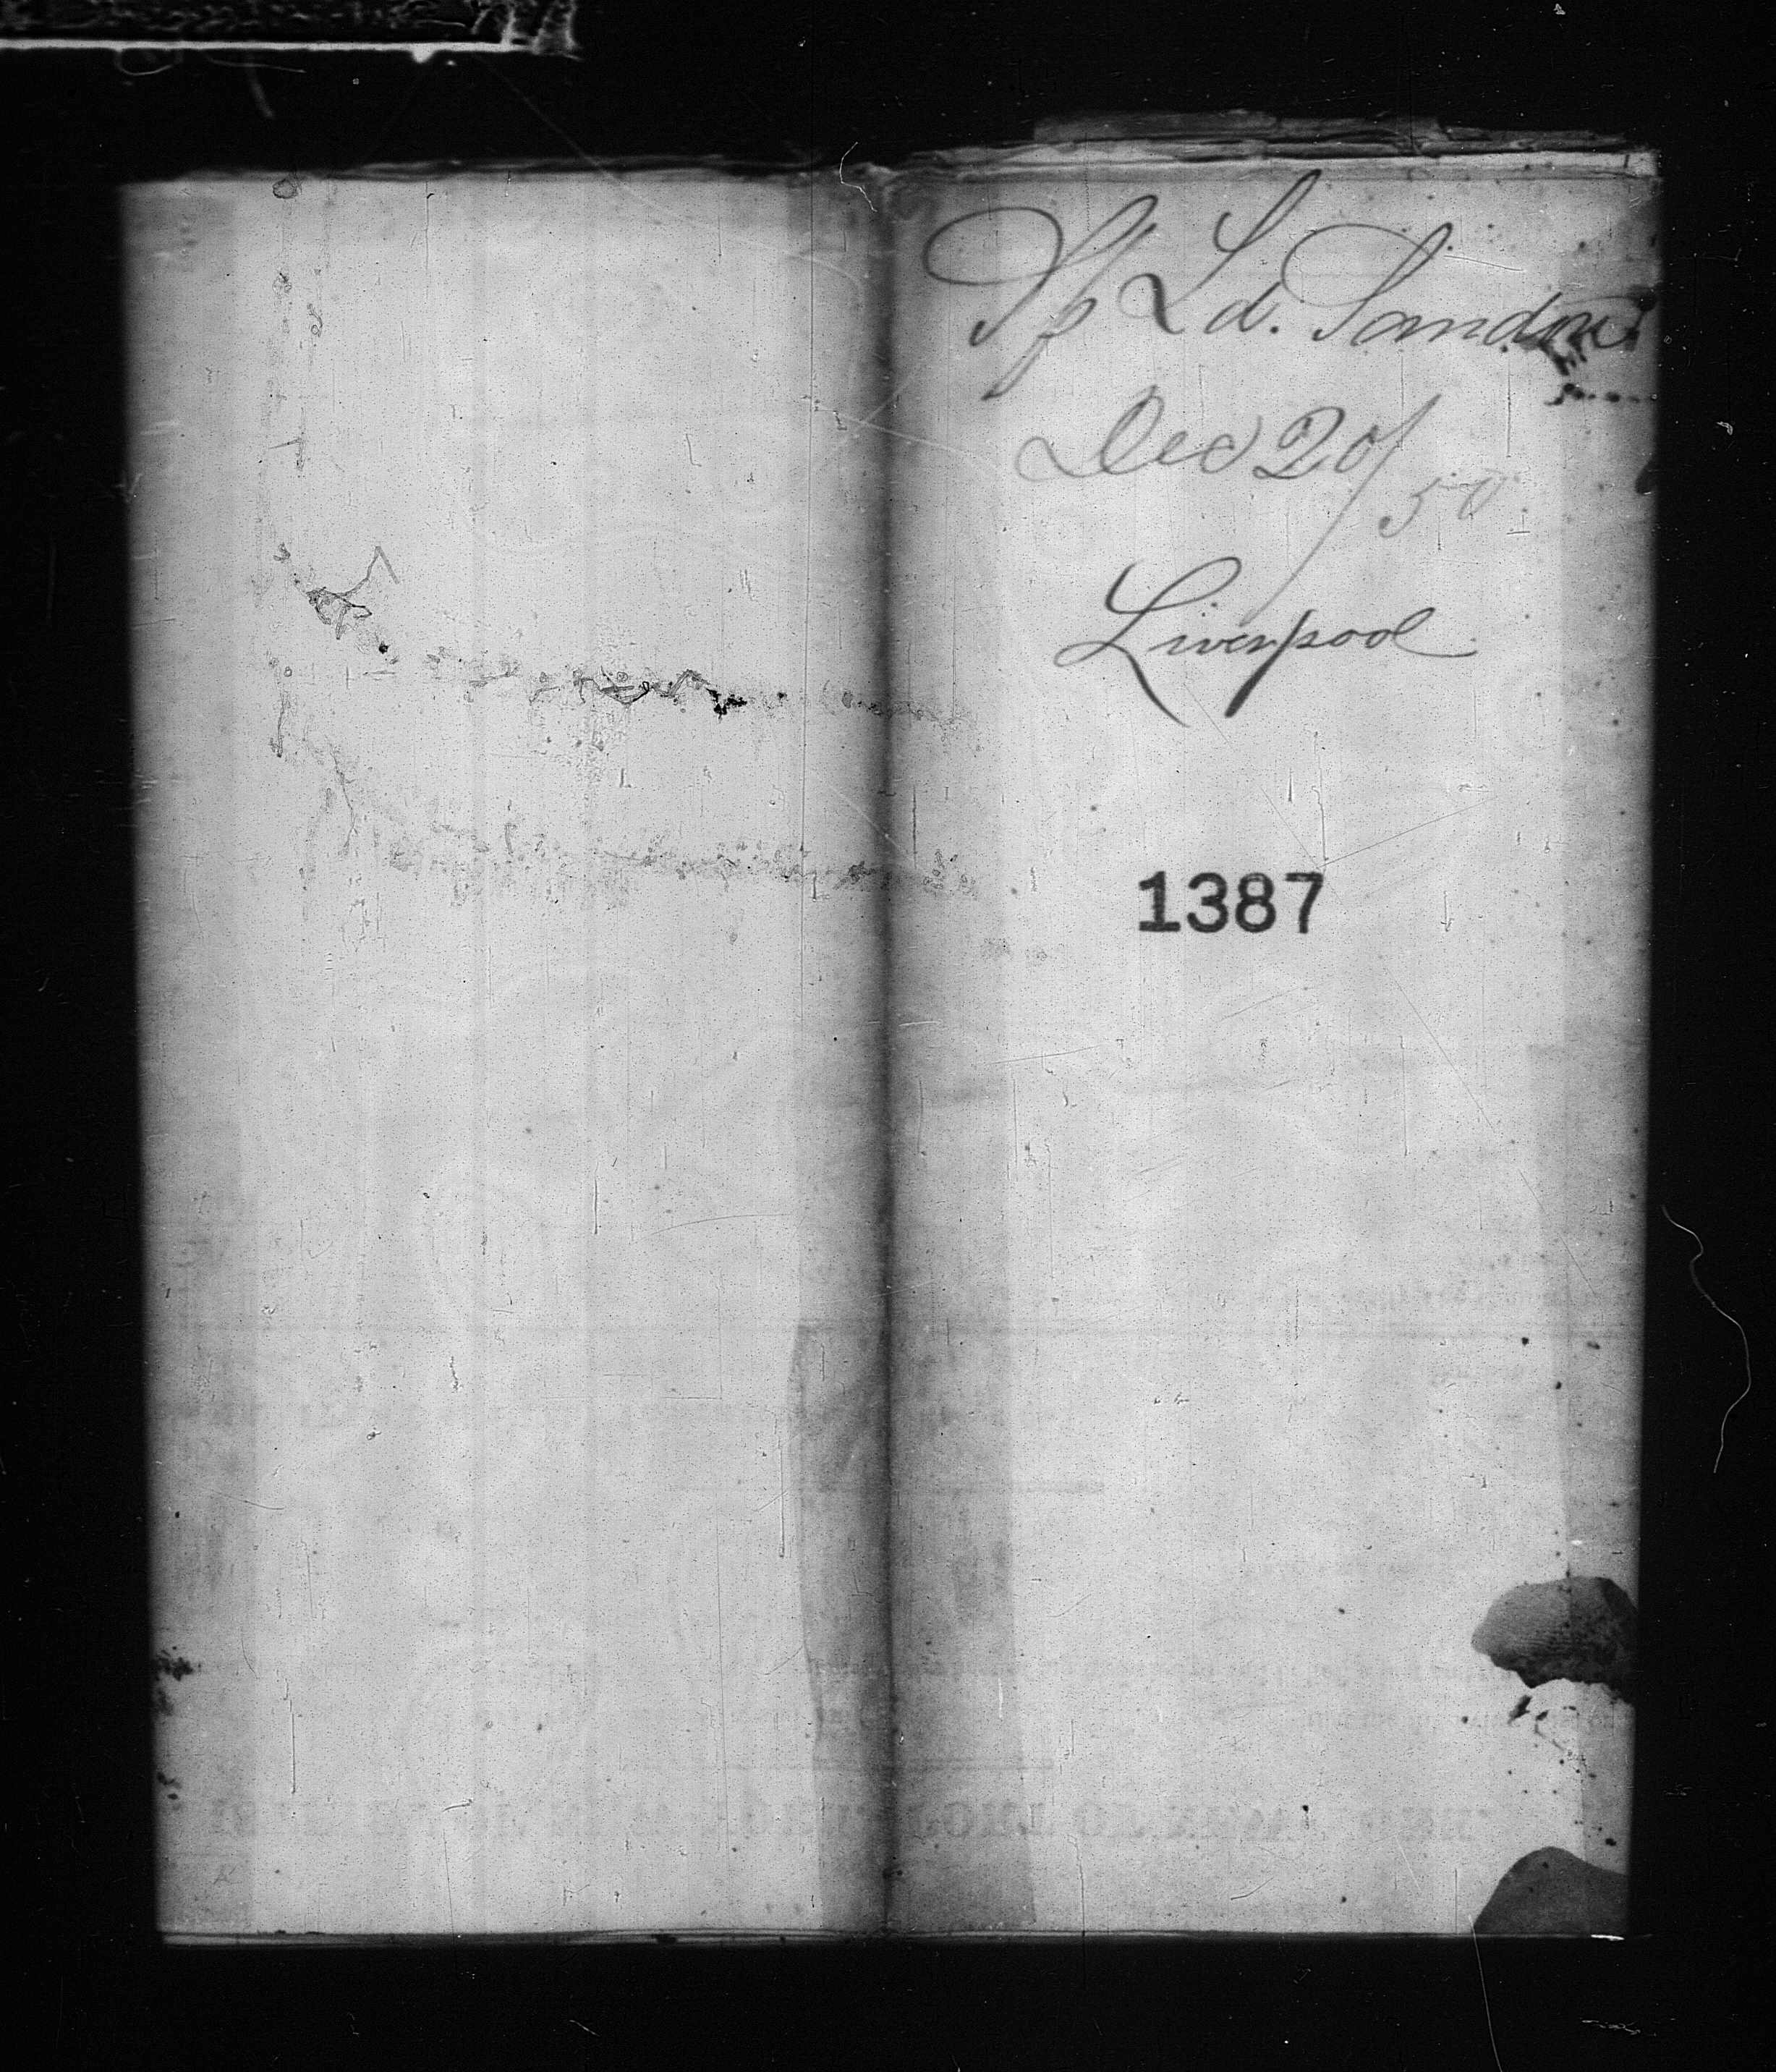 Sp Ld. Sandon
Dec 20/50
Liverpool
1387